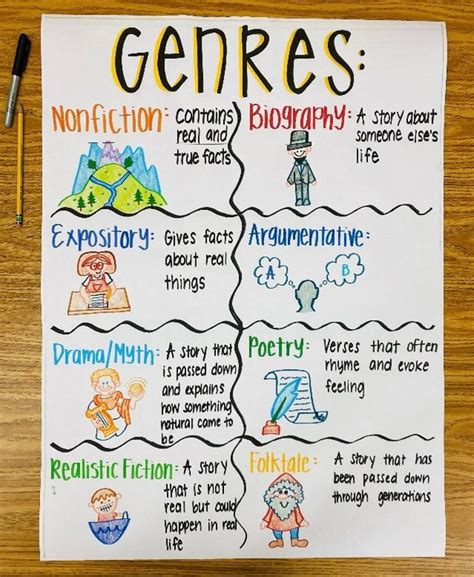 Genres:
Nonfiction: Contains
real and
true facts
Biography: A story about
someone else's
life
Expository: Gives facts
about real
things
Argumentative:
A
B
Drama/Myth: A story that
is passed down
and explains
how something
natural came to
be
Poetry: Verses that often
rhyme and evoke
feeling
Realistic Fiction: A story
that is not
real but could
happen in real
life
Folktale: A story that has
been passed down
through generations